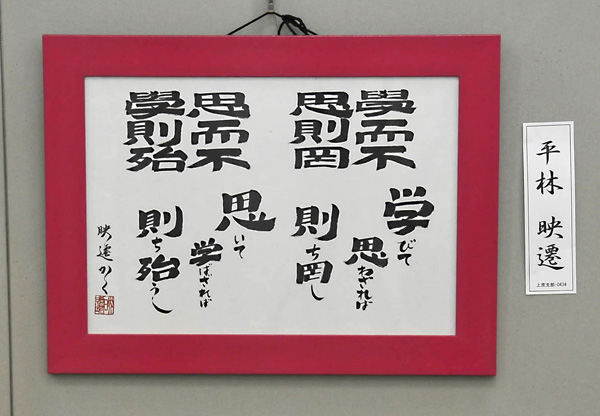 學而不
思則罔
思而不
學則殆
学びて
思わざれば
則ち罔し
思いて
学ばざれば
則ち殆うし
映遷かく
平林 映遷
上席支部-0434